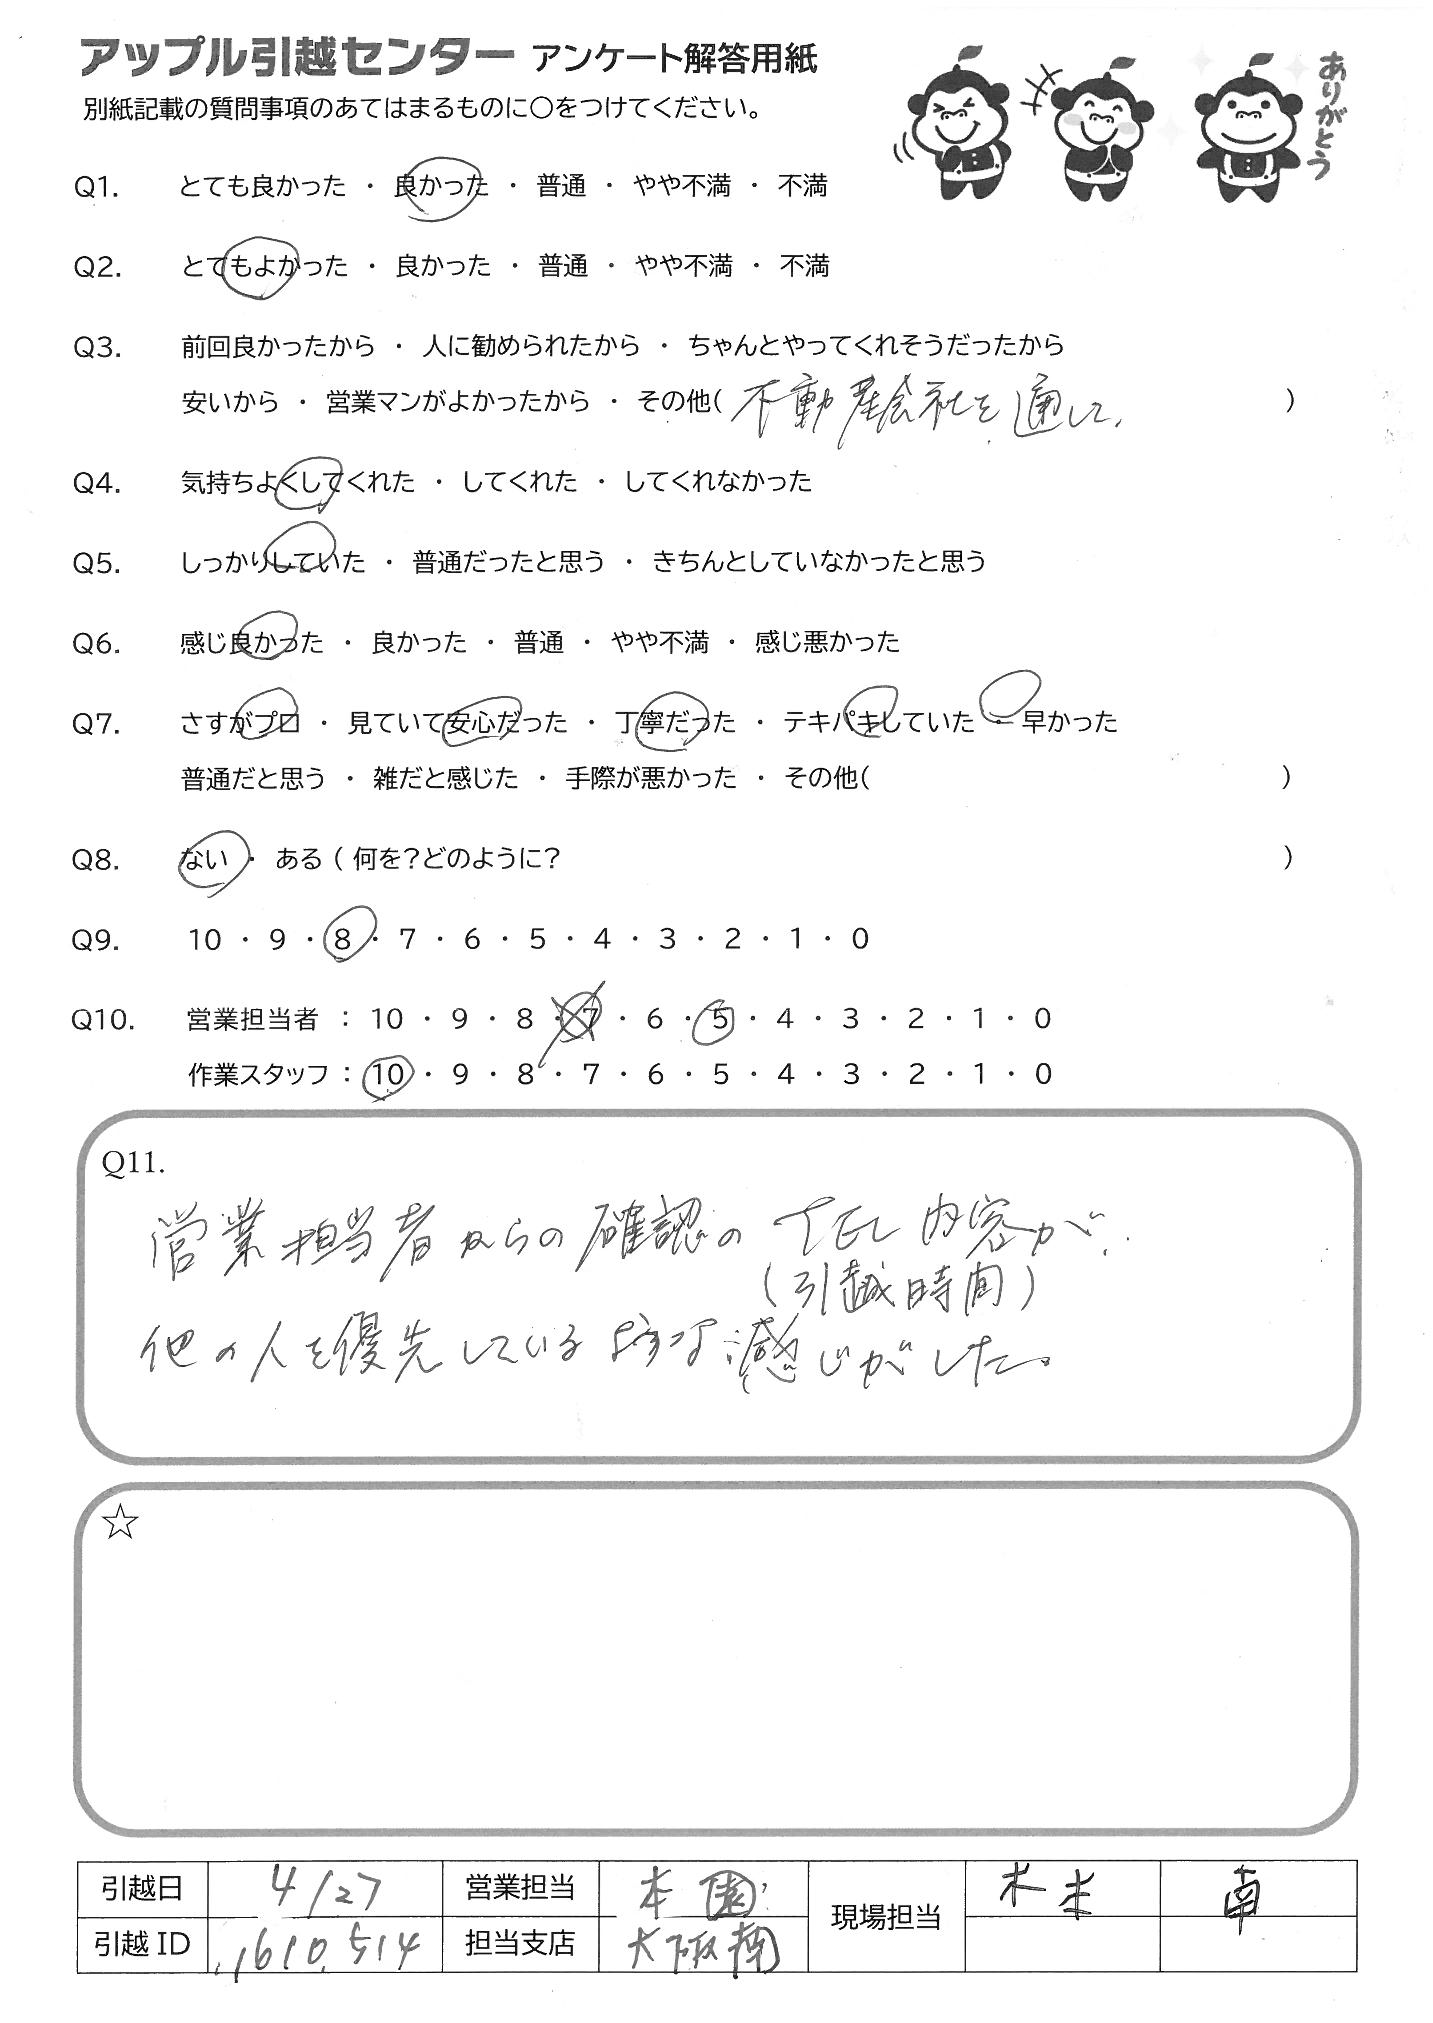 アップル引越センター アンケート解答用紙
別紙記載の質問事項のあてはまるものに○をつけてください。
ありがとう
Q1. とても良かった ・ 良かった ・ 普通 ・ やや不満 ・ 不満
Q2. とてもよかった ・ 良かった ・ 普通 ・ やや不満 ・ 不満
Q3. 前回良かったから ・ 人に勧められたから ・ ちゃんとやってくれそうだったから
安いから ・ 営業マンがよかったから ・ その他( 不動産会社を通して。 )
Q4. 気持ちよくしてくれた ・ してくれた ・ してくれなかった
Q5. しっかりしていた ・ 普通だったと思う ・ きちんとしていなかったと思う
Q6. 感じ良かった ・ 良かった ・ 普通 ・ やや不満 ・ 感じ悪かった
Q7. さすがプロ ・ 見ていて安心だった ・ 丁寧だった ・ テキパキしていた ・ 早かった
普通だと思う ・ 雑だと感じた ・ 手際が悪かった ・ その他( )
Q8. ない ・ ある ( 何を?どのように? )
Q9. 10 ・ 9 ・ 8 ・ 7 ・ 6 ・ 5 ・ 4 ・ 3 ・ 2 ・ 1 ・ 0
Q10. 営業担当者 : 10 ・ 9 ・ 8 ・ 7 ・ 6 ・ 5 ・ 4 ・ 3 ・ 2 ・ 1 ・ 0
作業スタッフ : 10 ・ 9 ・ 8 ・ 7 ・ 6 ・ 5 ・ 4 ・ 3 ・ 2 ・ 1 ・ 0
Q11.
営業担当者からの確認のTEL内容が
(引越時間)
他の人を優先している様な感じがした。
☆
引越日 4/27 営業担当 本園 現場担当 南
引越ID 1610514 担当支店 大阪南